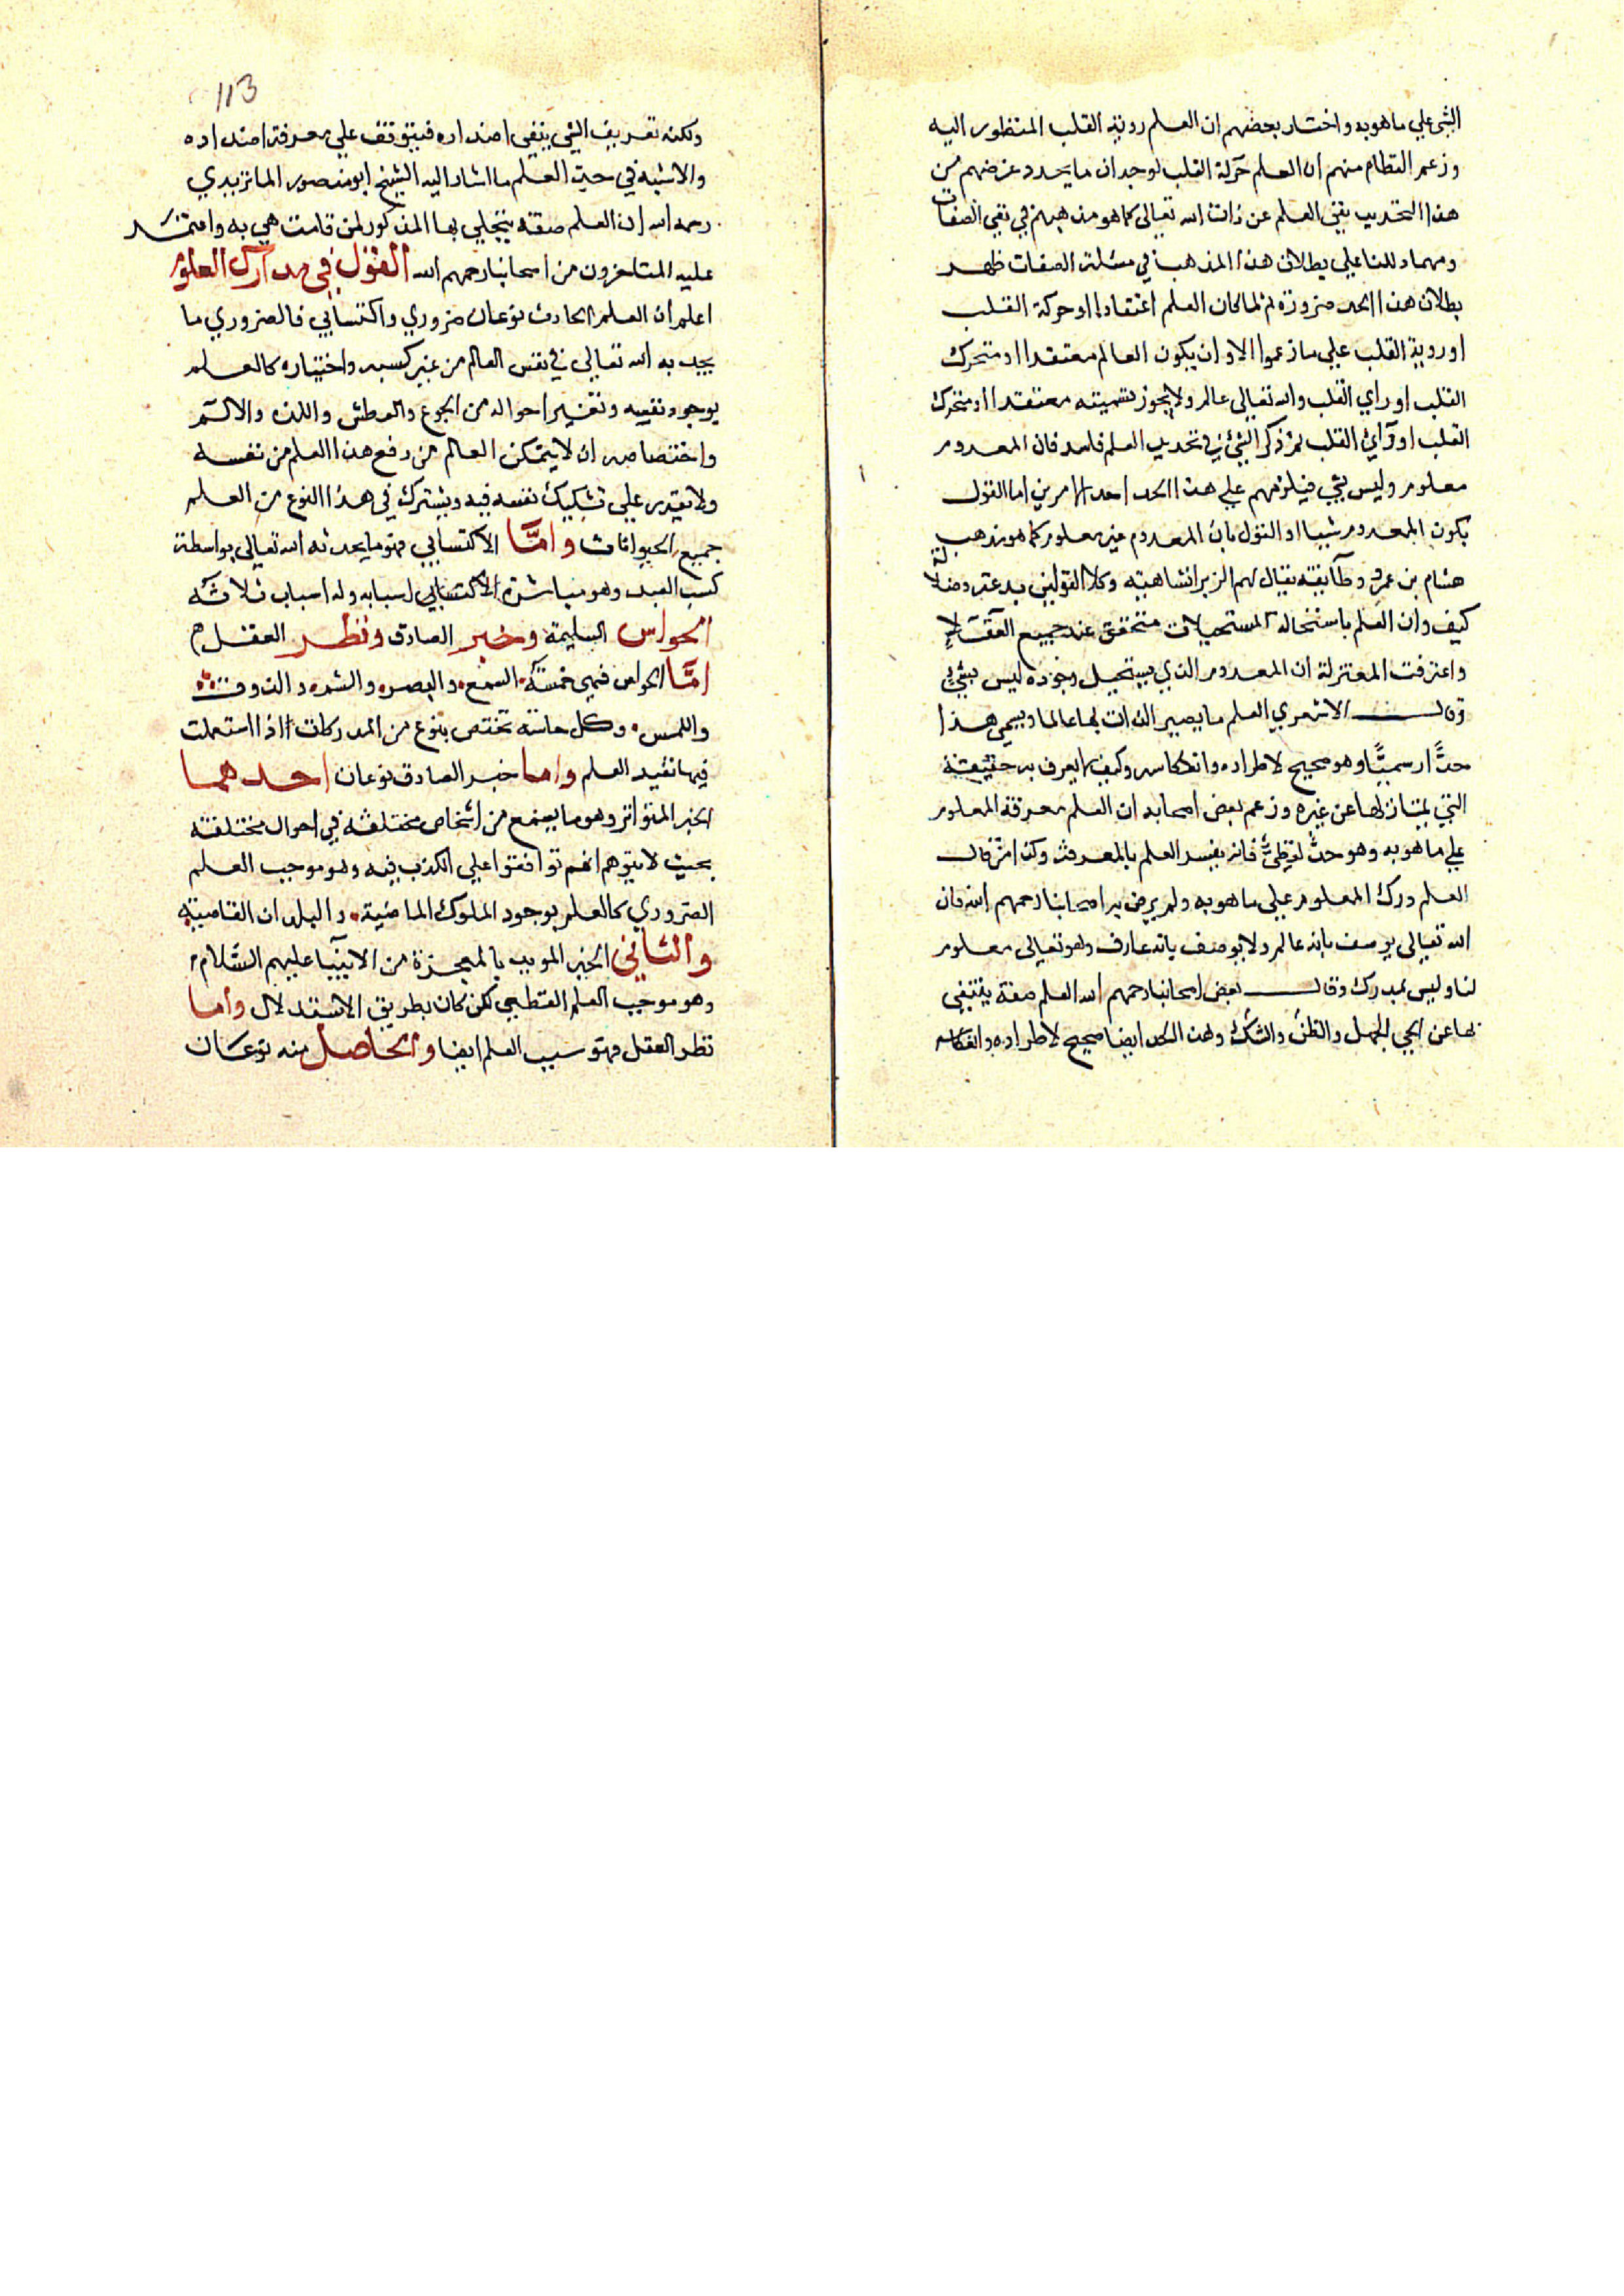 الشي علي ما هو به واختار بعضهم ان العلم روية القلب المنظور اليه
وزعم النظام منهم ان العلم حركة القلب لوجدان ما يحدد غرضهم من
هذا التحديد نفي العلم عن ذات الله تعالي كما هو مذهبهم في نفي الصفات
ومهما دللنا علي بطلان هذا المذهب في مسئلة الصفات ظهر
بطلان هذا الحد ضرورة ثم لما كان العلم اعتقادا او حركة القلب
او روية القلب علي ما زعموا الا وان يكون العالم معتقدا او متحرك
القلب او راي القلب والله تعالي عالم ولا يجوز تسميته معتقدا او متحرك
القلب او رآئ القلب ثم ذكر الشئ في تحديد العلم فاسد فان المعدوم
معلوم وليس بشي فيلزمهم علي هذا الحد احد الامرين اما القول
بكون المعدوم شيا او القول بان المعدوم غير معلوم كما هو مذهب
هشام بن عمرو وطآيفة يقال لهم الزبرانشاهية وكلا القولين بدعة وضلالة
كيف وان العلم باستحالة المستحيلات متحقق عند جميع العقلآ
واعترفت المعتزلة ان المعدوم الذي يستحيل وجوده ليس بشي
وقال الاشعري العلم ما يصير الذات بها عالما ويسمي هذا
حدًّا رسميًّا وهو صحيح لاطراده وانعكاسه وكيف لا يعرف به حقيقته
التي يمتاز بها عن غيره وزعم بعض اصحابه ان العلم معرفة المعلوم
علي ما هو به وهو حدٌّ لفظيٌّ فانه يفسر العلم بالمعرفة وكذا من قال
العلم درك المعلوم علي ما هو به ولم يرض به اصحابنا رحمهم الله فان
الله تعالي يوصف بانه عالم ولا يوصف بانه عارف وهو تعالي معلوم
لنا وليس بمدرك وقال بعض اصحابنا رحمهم الله العلم صفة ينتفي
بها عن الحي الجهل والظن والشك وهذا الحد ايضا صحيح لاطراده وانعكاسه
113
ولكنه تعريف الشي بنفي اضداده فيتوقف علي معرفة اضداده
والاشبه في حد العلم ما اشار اليه الشيخ ابو منصور الماتريدي
رحمه الله ان العلم صفة يتجلي بها المذكور لمن قامت هي به واعتمد
عليه المتاخرون من اصحابنا رحمهم الله القول في مدآرك العلوم
اعلم ان العلم الحادث نوعان ضروري واكتسابي فالضروري ما
يحدثه الله تعالي في نفس العالم من غير كسبه واختياره كالعلم
بوجود نفسه وتغير احواله من الجوع والعطش واللذة والالم
واختصاصه ان لا يتمكن العالم من دفع هذا العلم من نفسه
ولا يقدر علي تشكيك نفسه فيه ويشترك في هذا النوع من العلم
جميع الحيوانات وامَّا الاكتسابي فهو ما يحدثه الله تعالي بواسطة
كسب العبد وهو مباشرة الاكتسابي اسبابه وله اسباب ثلاثة
الحواس السليمة وخبر الصادق ونظر العقل
امَّا الحواس فهي خمسة السمع والبصر والشم والذوق
واللمس وكل حاسة تختص بنوع من المدركات اذا استعملت
فيها تفيد العلم واما خبر الصادق نوعان احدهما
الخبر المتواتر وهو ما يسمع من اشخاص مختلفة في احوال مختلفة
بحيث لا يتوهم انهم توافقوا علي الكذب فيه وهو موجب العلم
الضروري كالعلم بوجود الملوك الماضية والبلدان القاصية
والثاني الخبر المويد بالمعجزة من الانبيآ عليهم السَّلام
وهو موجب العلم القطعي لكن كان بطريق الاستدلال واما
نظر العقل فهو سبب العلم ايضا والحاصل منه نوعان